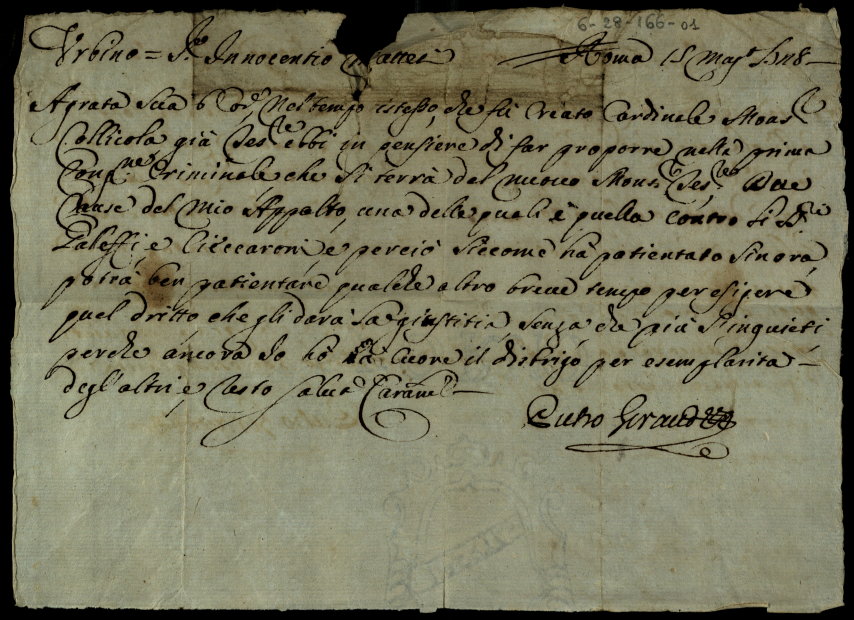 6-28-166-01
Urbino = Sr. Innocentio Mattei Roma 15 Magº 1728
A grata sua 6 Corr. Nel tempo istesso, che fù Creato Cardinale Monsre
Collicola già Tesre ebbi in pensiere di far proporre nella prima
Congne Criminale che si terrà del nuovo Monsre Tesre due
Cause del mio Appalto, una delle quali è quella contro li SSri
Paleffi, e Ciccaroni, e perciò siccome hà patientato sinora,
potrà ben patientare qualche altro breve tempo per esigere
quel dritto che gli darà la giustitia, senza che più s'inquieti
perche ancora Io hò à cuore il distrigo per esemplarità
degl'altri, e resto salutº Caramte
Pietro Giraud